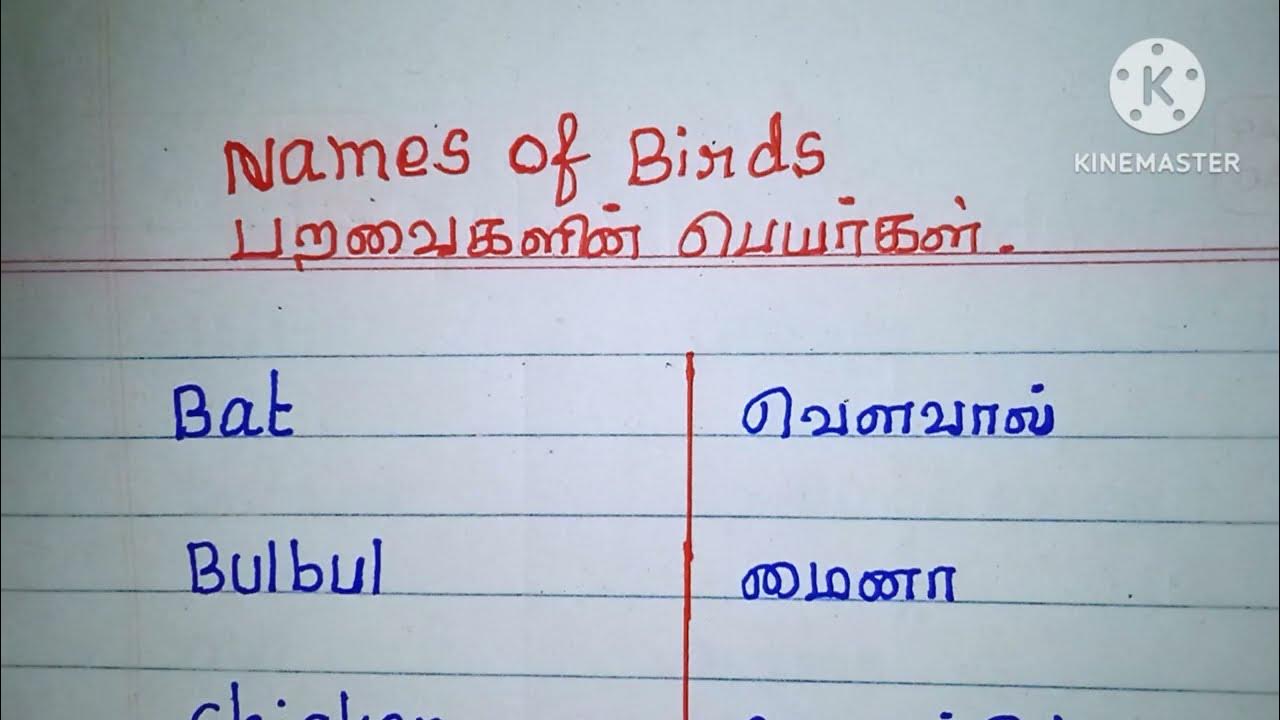 Names of Birds
பறவைகளின் பெயர்கள்.
KINEMASTER
Bat வௌவால்
Bulbul மைனா
Chicken